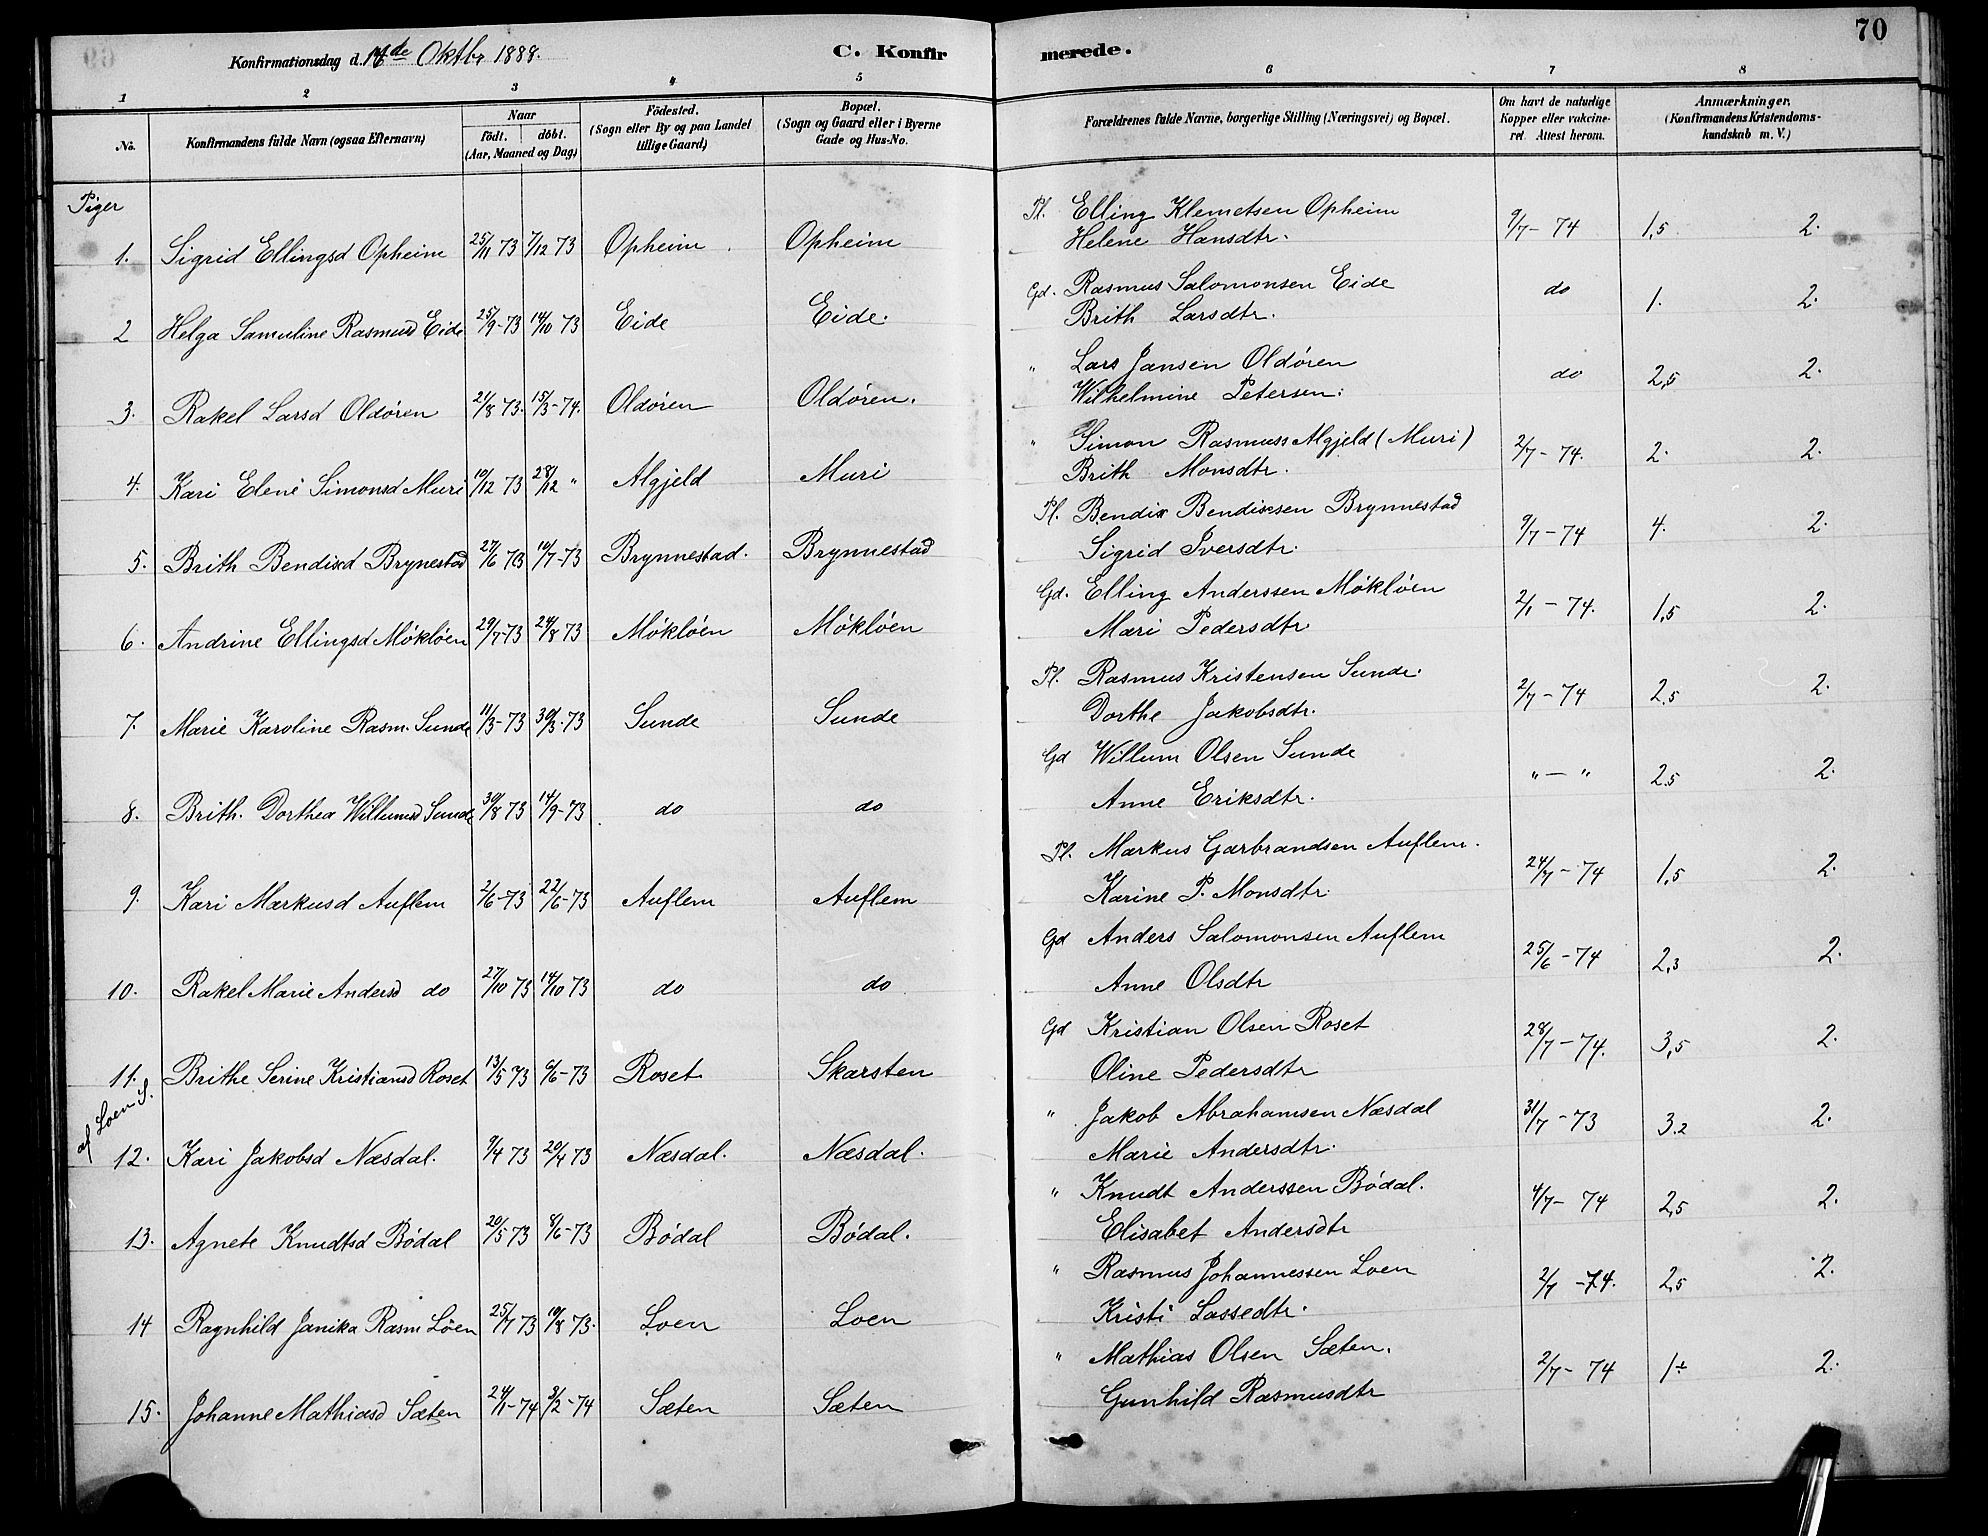 70
Konfirmationsdag d. 14de Oktbr 1888.
C. Konfirmerede.
1 2 3 4 5 6 7 8
No.
Konfirmandens fulde Navn (ogsaa Efternavn)
Naar
födt. döbt.
(Aar, Maaned og Dag)
Födested.
(Sogn eller By og paa Landet
tillige Gaard)
Bopæl.
(Sogn og Gaard eller i Byerne
Gade og Hus-No.
Forældrenes fulde Navne, borgerlige Stilling (Næringsvei) og Bopæl.
Om havt de naturlige
Kopper eller vakcine-
ret. Attest herom.
Anmærkninger.
(Konfirmandens Kristendoms-
kundskab m. V.)
Piger
1. Sigrid Ellingsd Opheim 25/11 73 7/12 73 Opheim Opheim Pl. Elling Klemetsen Opheim 9/7-74 1,5 2.
Helene Hansdtr.
2 Helga Samuline Rasmusd Eide 25/9-73 14/10 73 Eide Eide. Gd. Rasmus Salomonsen Eide do 1. 2.
Brith Larsdtr.
3. Rakel Larsd Oldören 21/8 73. 15/3-74. Oldören Oldören. " Lars Jansen Oldören do 2,5 2.
Wilhelmine Petersen.
4. Kari Elene Simonsd Muri 10/12 73 28/12 " Algjeld Muri " Simon Rasmuss Algjeld (Muri) 2/7-74. 2. 2.
Brith Monsdtr.
5. Brith Bendixd Brynestad 27/6 73 10/7-73 Brynnestad. Brynnestad Pl. Bendix Bendixsen Brynnestad 9/7-74 4. 2.
Sigrid Iversdtr.
6. Andrine Ellingsd Mökløen 29/7-73 24/8 73 Mökløen Mökløen Gd. Elling Anderssen Mökløen 2/1-74. 1,5 2.
Mari Pedersdtr.
7. Marie Karoline Rasm. Sunde 11/3-73 30/3-73 Sunde Sunde Pl. Rasmus Kristensen Sunde. 2/7-74 2,5 2.
Dorthe Jakobsdtr.
8. Brith. Dorthea Willumsd Sunde 30/8 73 14/9-73 do do Gd Willum Olsen Sunde "-" 2.5 2.
Anne Eriksdtr.
9. Kari Markusd Auflem 2/6-73 22/6-73 Auflem Auflem Pl. Markus Garbrandsen Auflem. 24/7-74 1,5 2.
Karine P. Monsdtr.
10. Rakel Marie Andersd do 27/10 73 14/10 73 do do Gd Anders Salomonsen Auflem 25/6-74 2,3 2.
Anne Olsdtr
11. Brithe Serine Kristiansd Roset 13/5-73 6/6-73 Roset Skarsten Gd Kristian Olsen Roset 28/7-74. 3,5 2.
Oline Pedersdtr
af Loen S.
12. Kari Jakobsd Næsdal. 9/4 73 20/4 73 Næsdal. Næsdal. " Jakob Abrahamsen Næsdal 31/7-73 3.2 2.
Marie Andersdtr.
13. Agnete Knudtsd Bödal 20/5 73 8/6-73 Bödal Bödal. " Knudt Anderssen Bödal. 4/7-74 2,5 2.
Elisabet Andersdtr
14 Ragnhild Janika Rasm Löen 25/7 73 10/8 73. Loen Loen " Rasmus Johannessen Loen 2/7-74. 2,5 2.
Kristi Lassedtr.
15. Johanne Mathiasd Sæten 24/1-74 3/2-74 Sæten Sæten " Mathias Olsen Sæten. 2/7-74 1± 2.
Gunhild Rasmusdtr